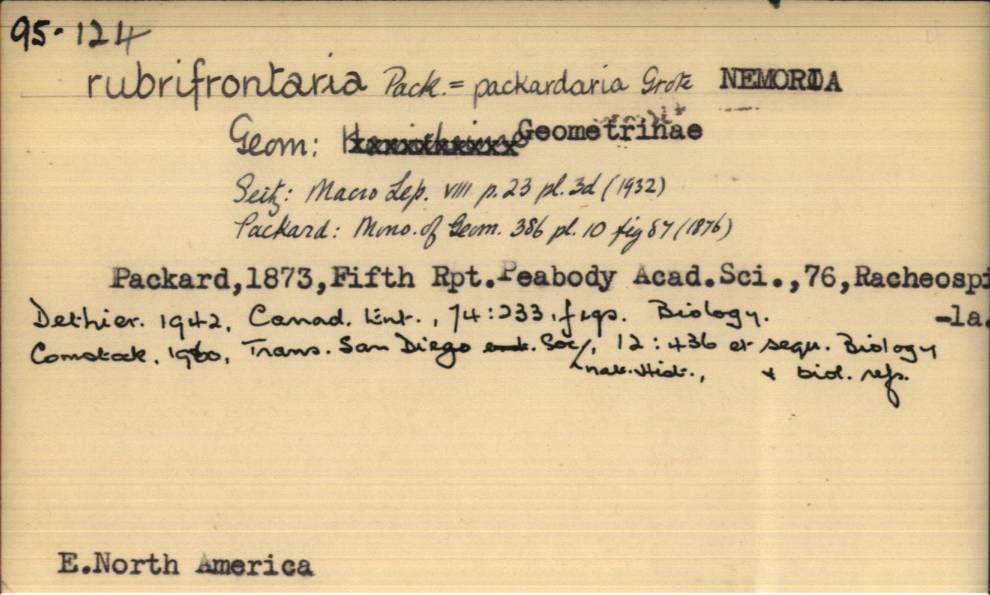 95·124
rubrifrontaria Pack. = packardaria Grote NEMORIA
Geom: Geometrinae
Seitz: Macro Lep. VIII p. 23 pl. 3d (1932)
Packard: Mono. of Geom. 386 pl. 10 fig 87 (1876)
Packard,1873,Fifth Rpt.Peabody Acad.Sci.,76,Racheospi
-la.
Dethier. 1942, Canad. Ent., 74:233, figs. Biology.
Comstock. 1960, Trans. San Diego Soc., 12:436 et sequ. Biology
nat. Hist., & biol. refs.
E.North America